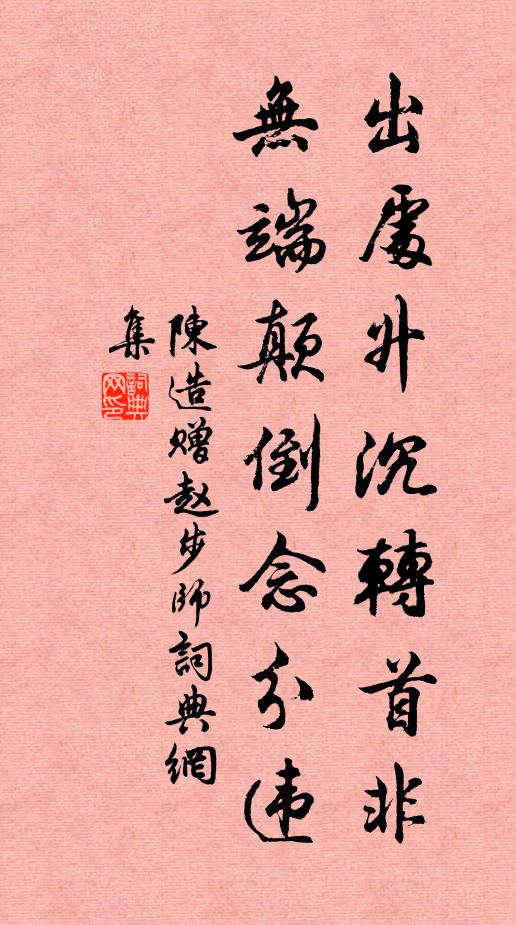 出處升沉轉首非
無端顛倒念分違
陳造贈趙步師詞典網
集
詞典
網印